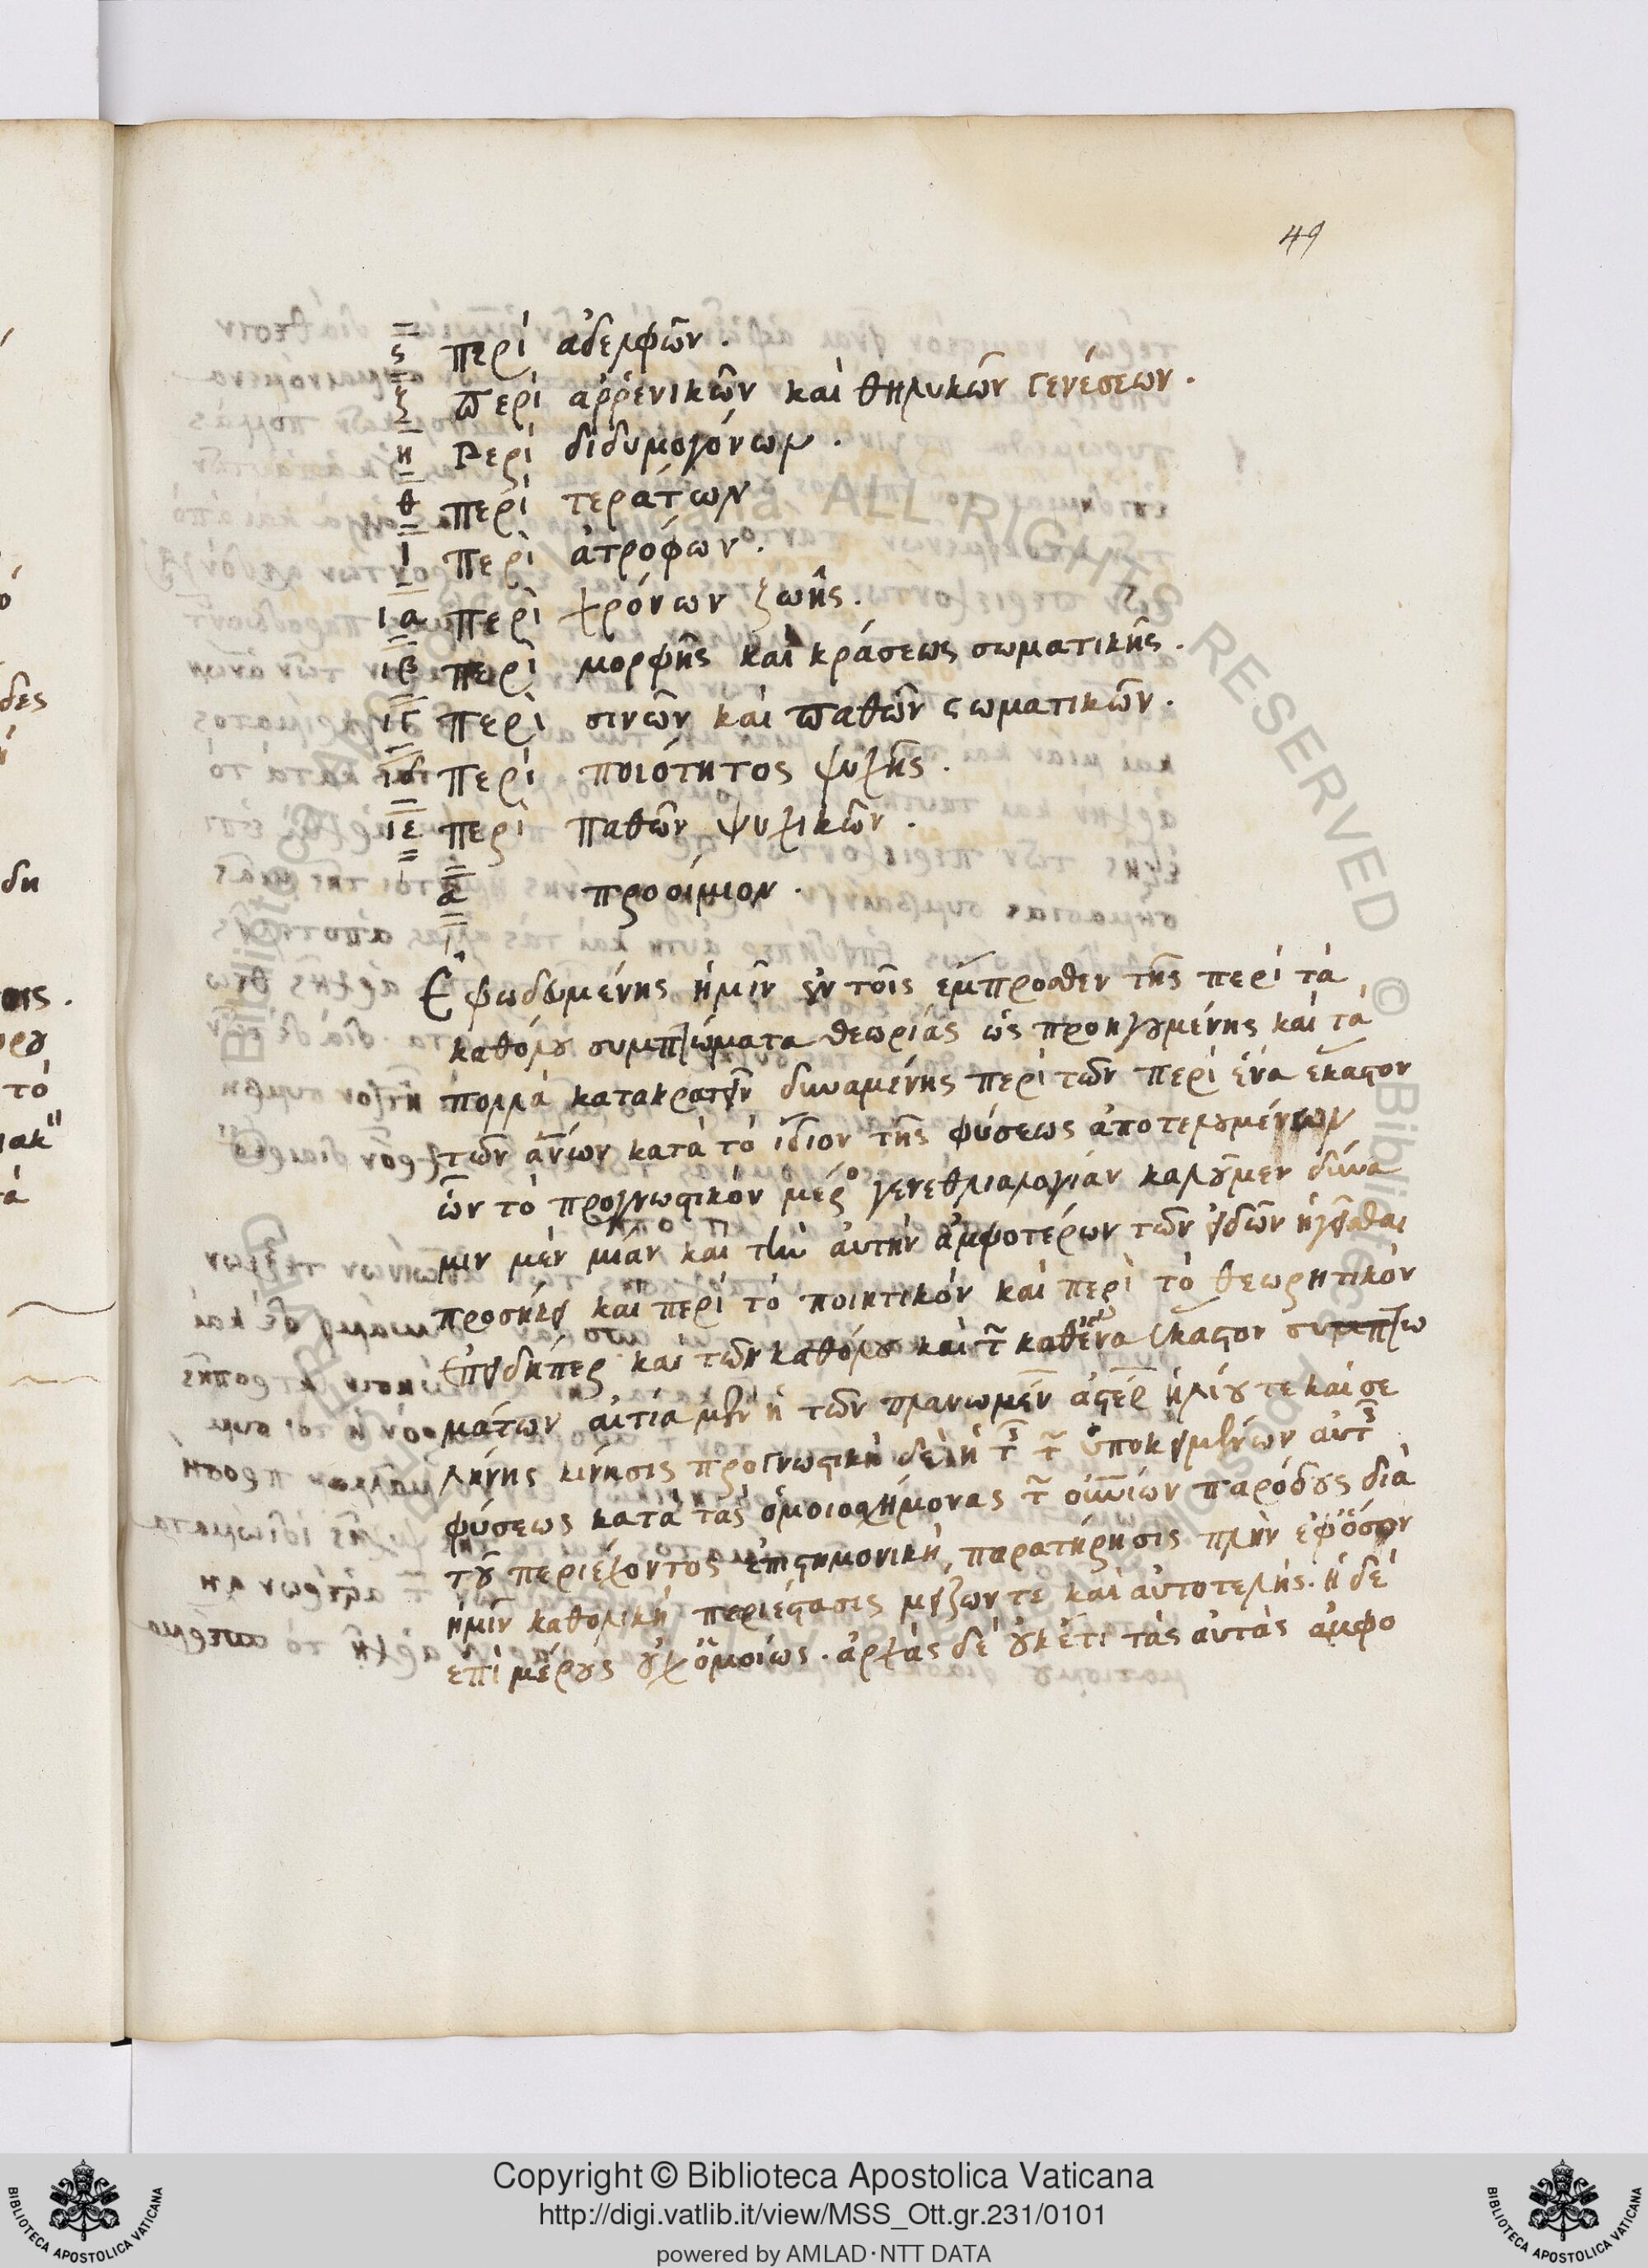 49
ς περὶ ἀδελφῶν.
ζ περὶ ἀρρενικῶν καὶ θηλυκῶν γενέσεων.
η Περὶ διδυμογόνων.
θ περὶ τεράτων
ι περὶ ἀτρόφων.
ια περὶ χρόνων ζωῆς.
ιβ περὶ μορφῆς καὶ κράσεως σωματικῆς.
ιγ περὶ σινῶν καὶ παθῶν σωματικῶν.
ιδ περὶ ποιότητος ψυχῆς.
ιε περὶ παθῶν ψυχικῶν.
α προοίμιον.
Ἐφωδευμένης ἡμῖν ἐν τοῖς ἔμπροσθεν τῆς περὶ τὰ
καθόλου συμπτώματα θεωρίας ὡς προηγουμένης καὶ τὰ
πολλὰ κατακρατεῖν δυναμένης περὶ τῶν περὶ ἕνα ἕκαστον
τῶν ἀν̅ων κατὰ τὸ ἴδιον τῆς φύσεως ἀποτελουμένων
ὧν τὸ προγνωστικὸν μέρο γενεθλιαλογίαν καλοῦμεν δύνα
μιν μὲν μίαν καὶ τὴν αὐτὴν ἀμφοτέρων τῶν εἰδῶν ἡγεῖσθαι
προσήκει καὶ περὶ τὸ ποιητικὸν καὶ περὶ τὸ θεωρητικὸν
ἐπειδήπερ καὶ τῶν καθόλου καὶ τ̃ καθ' ἕνα ἕκαστον συμπτω
μάτων αἰτία μὲν ἡ τῶν πλανωμέν ἀστέρ ἡλίου τε καὶ σε
λήνης κίνησις προγνωστικὴ δὲ ἡ τ̃ τ̃ ὑποκειμένων αὐτ
φύσεως κατὰ τὰς ὁμοιοσχήμονας τ̃ οὐνίων παρόδους διὰ
τοῦ περιέχοντος ἐπιστημονικὴ παρατήρησις πλὴν ἐφ' ὅσον
ἡμῖν καθολικὴ περιέστασις μείζων τε καὶ αὐτοτελής. ἡ δὲ
ἐπὶ μέρους οὐχ ὁμοίως. ἀρχὰς δὲ οὐκέτι τὰς αὐτὰς ἀμφο
δες
δη
οις.
ργου
τὸ
ιακ"
τὰ
© Biblioteca Apostolica Vaticana ALL RIGHTS RESERVED © Biblioteca Apostolica Vaticana ALL RIGHTS RESERVED
Copyright © Biblioteca Apostolica Vaticana
http://digi.vatlib.it/view/MSS_Ott.gr.231/0101
powered by AMLAD·NTT DATA
BIBLIOTECA APOSTOLICA VATICANA
BIBLIOTECA APOSTOLICA VATICANA